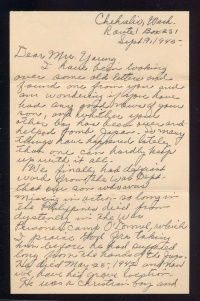 Chehalis, Wash.
Route 1 Box 231
Sept. 9, 1945-
Dear Mrs. Young,
I have been looking
over some old letters and
found one from you and
am wondering if you have
had any good news of your
son, and whether your
other son has been over and
helped bomb Japan. So many
things have happened lately,
that one can hardly keep
up with it all.
We finally had definite
word from the War Dept.
that our son who was
missing in action so long in
the Philippines died from
dysentery in the War
Prisoners Camp O'Donnell, which
I praise God for taking
him before he had suffered
long from the hands of the Japs.
He died May 25, 1942 and now
we have his grave location.
He was a Christian boy and